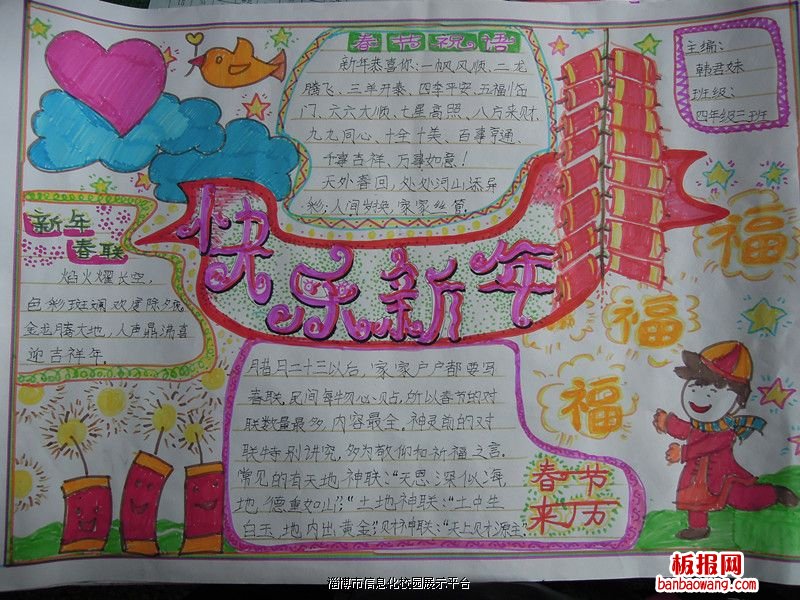 春节祝语
新年恭喜你:一帆风顺、二龙
腾飞、三羊开泰、四季平安、五福临
门、六六大顺、七星高照、八方来财、
九九同心、十全十美、百事亨通、
千事吉祥、万事如意!
天外春回,处处河山添异
彩;人间岁换,家家丝管
主编:
韩君妹
班级:
四年级三班
快乐新年
新年
春联
焰火耀长空,
色彩斑斓欢度除夕夜
金龙腾大地,人声鼎沸喜
迎吉祥年。
福
福
福
腊月二十三以后,家家户户都要写
春联,民间每物必贴,所以春节的对
联数量最多,内容最全。神灵前的对
联特别讲究,多为敬仰和祈福之言。
常见的有天地神联:“天恩深似海
地德重如山;”土地神联:“土中生
白玉,地内出黄金;”财神联:“天上财源主
春节
来历
淄博市信息化校园展示平台
板报网
banbaowang.com